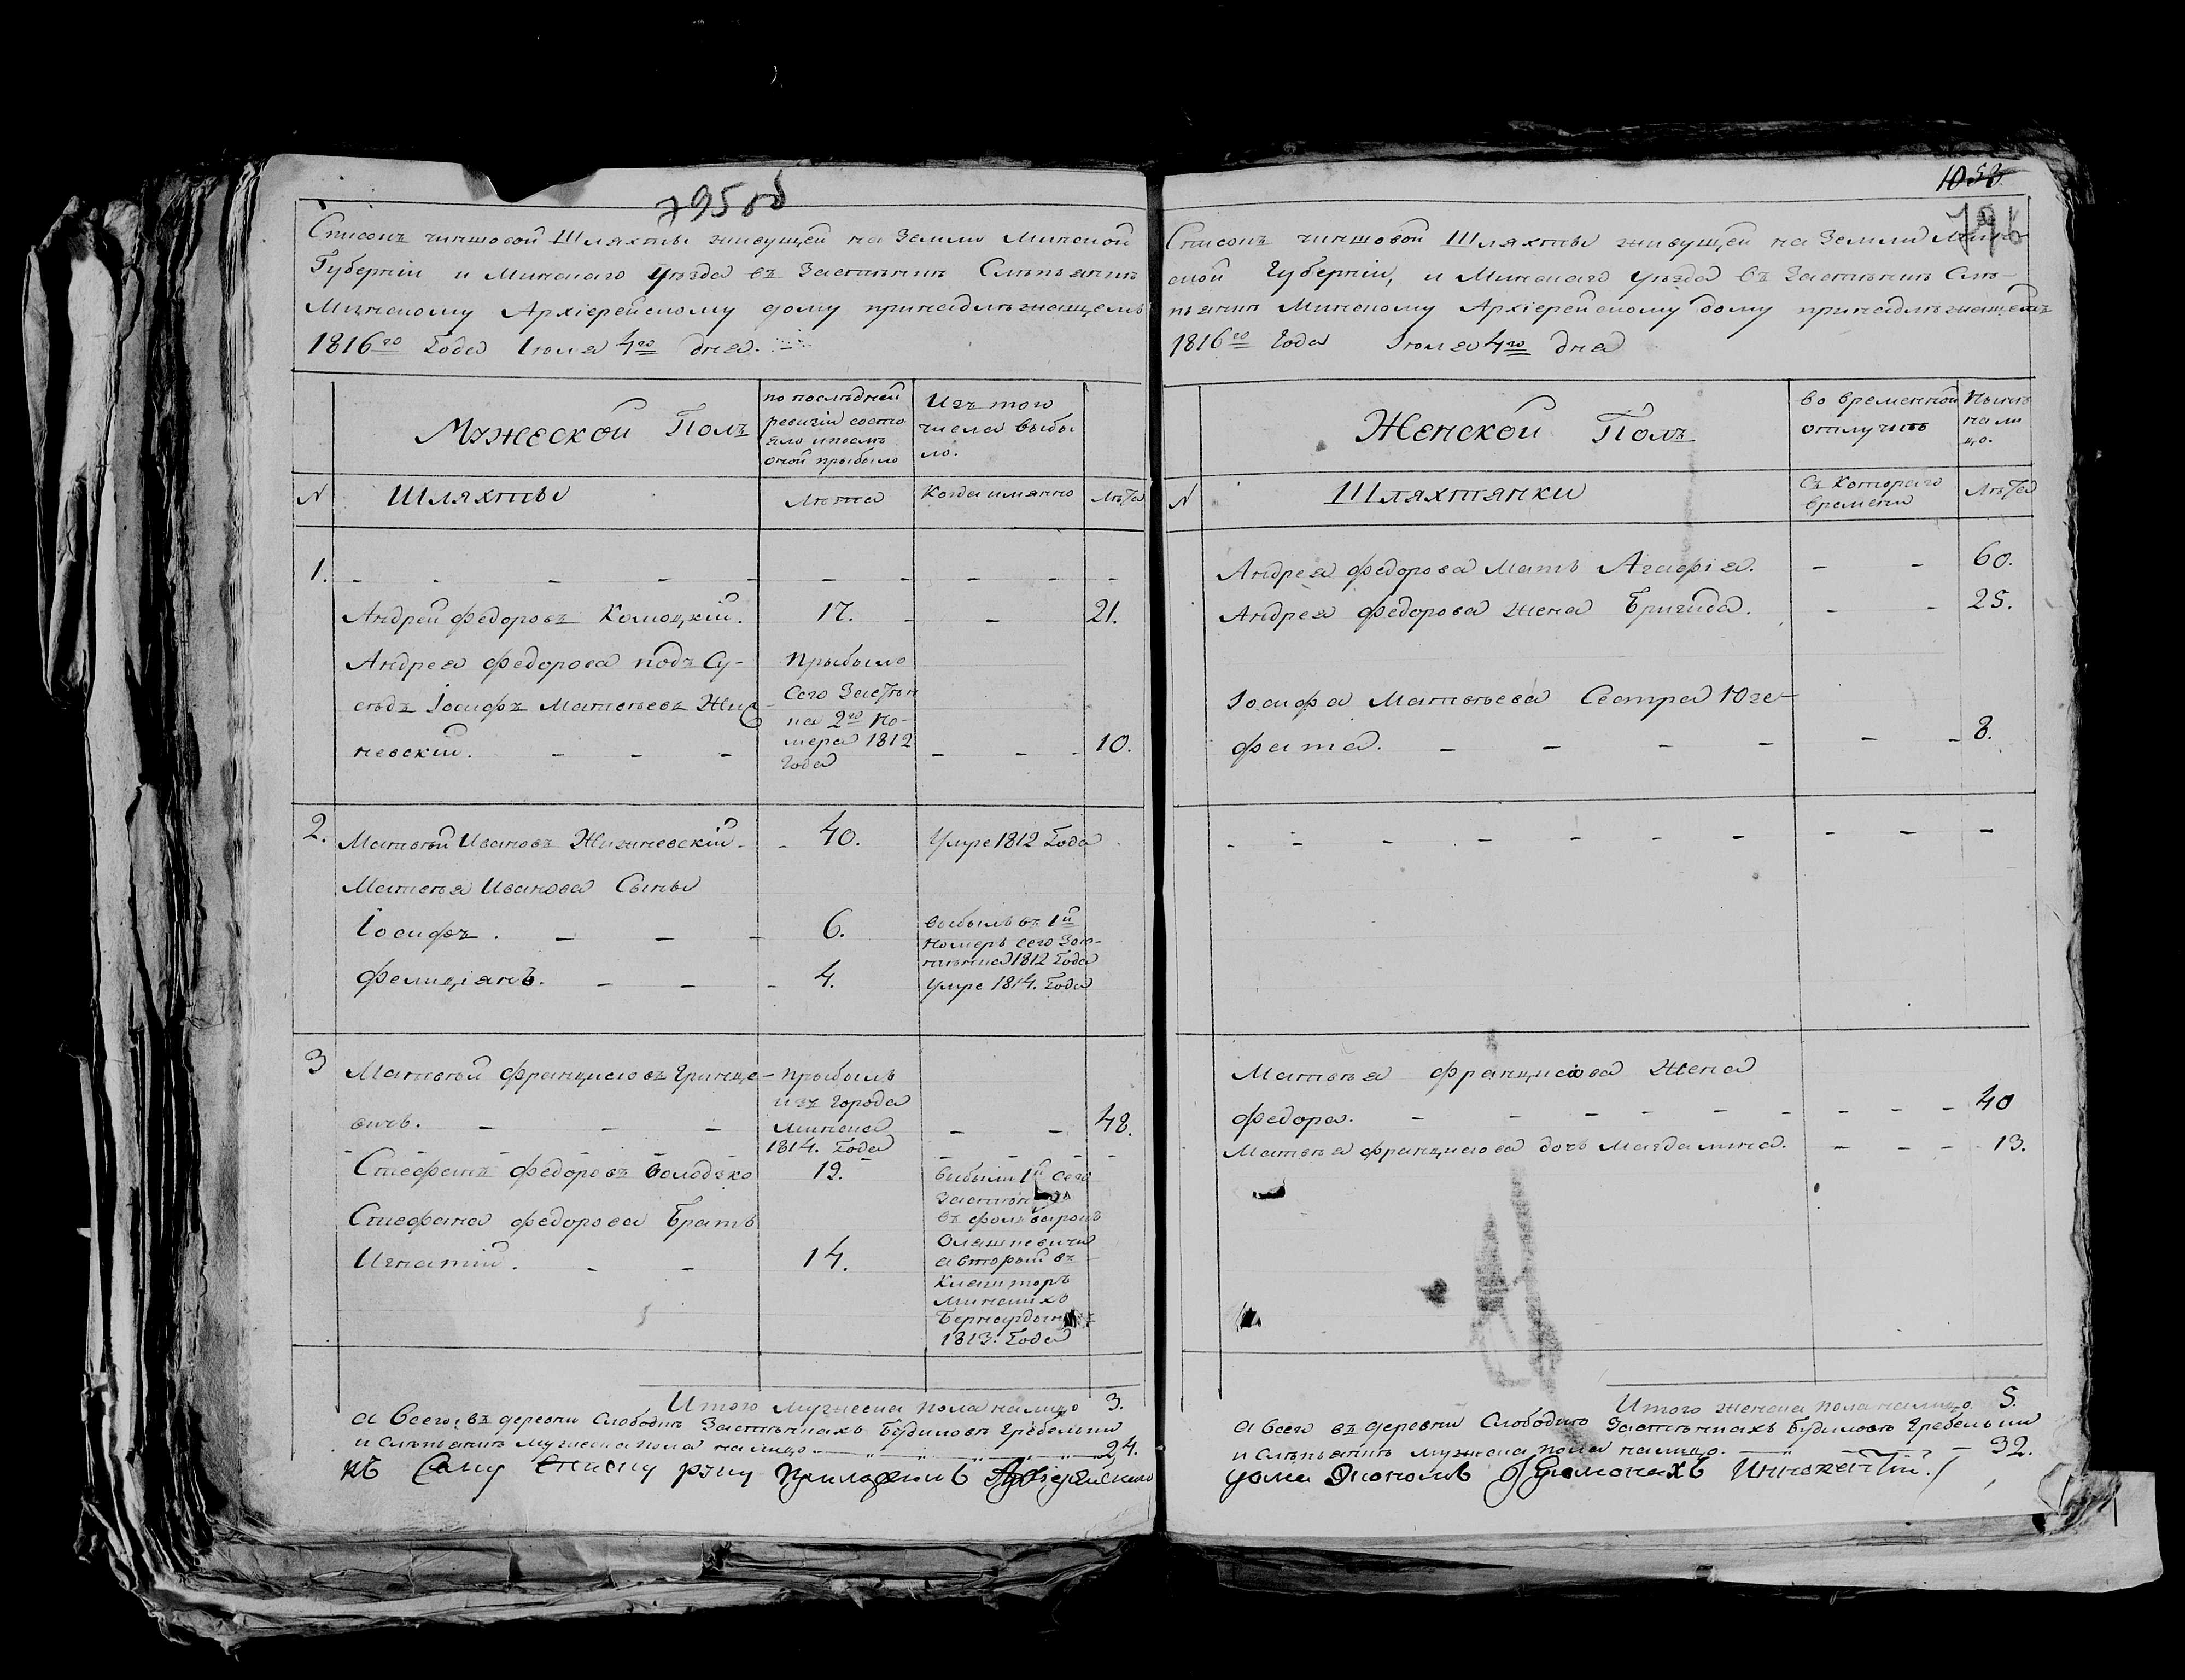 795 об
Списокъ чиншовой Шляхты живущей на Земли Минской
Губерніи и Минскаго Уѣзда въ Застѣнкѣ Слѣпянкѣ
Минскому Архіерейскому дому принадлежащемъ
1816го Года Іюля 4го дня.
Мужеской Полъ
по послѣдней
ревизіи состо
яло и послѣ
оной прыбыло
Изъ того
числа выбы
ло.
N Шляхты
Лѣта
Когда имянно
Лѣта
1.
Андрей Федоровъ 17. 21.
Андрея Федорова подъ Су-
сѣдъ Іосифъ Матвѣевъ Жиж-
невскій. 10.
Прыбыло
Сего Застѣн
ка 2го Но-
мера 1812
Года
2. Матвѣй Ивановъ Жижневскій. 40. Умре 1812 Года
Матвѣя Иванова Сыны
Іосифъ. 6.
выбылъ въ 1й
номеръ сего Зас-
тѣнка 1812 Года
Фелиціанъ. 4. Умре 1814. Года
3 Матвѣй Францисковъ Грице-
вичъ. 48.
прыбылъ
изъ города
Минска
1814. Года
Стефанъ Федоровъ Володзко 19.
Стефана Федорова Братъ
Игнатій. 14.
выбыли 1й сего
въ фольварокъ
а вторый въ
Кляшторъ
Минскихъ
1813. Года
Итого мужеска пола налицо 3.
а Всего въ деревни Слободкѣ Застѣнкахъ Будиловѣ Гребельки
и Слѣпянкѣ мужеска пола налицо 24.
къ Сему Списку руку приложилъ Архіерейскаго
1053
796
Списокъ чиншовой Шляхты живущей на Земли Мин-
ской Губерніи, и Минскаго Уѣзда въ Застѣнкѣ Слѣ-
пянкѣ Минскому Архіерейскому дому принадлежащемъ
1816го Года Іюля 4го дня
Женской Полъ
во временной
отлучкѣ
Нынѣ
на ли
цо.
N Шляхтянки
Съ Котораго
времени
Лѣта
Андрея Федорова Мать Агафія. 60.
Андрея Федорова жена Бригида. 25.
Іосифа Матвѣева Сестра Юзе-
фата. 8.
Матвѣя Францискова Жена
Федора. 40
Матвѣя Францискова дочь Магдалина. 13.
Итого женска пола налицо. 5.
а Всего въ деревни Слободкѣ Застѣнкахъ Будиловѣ Гребельки
и Слѣпянкѣ мужеска пола налицо. 32.
дома Экономъ Іеромонахъ Иннокентій.